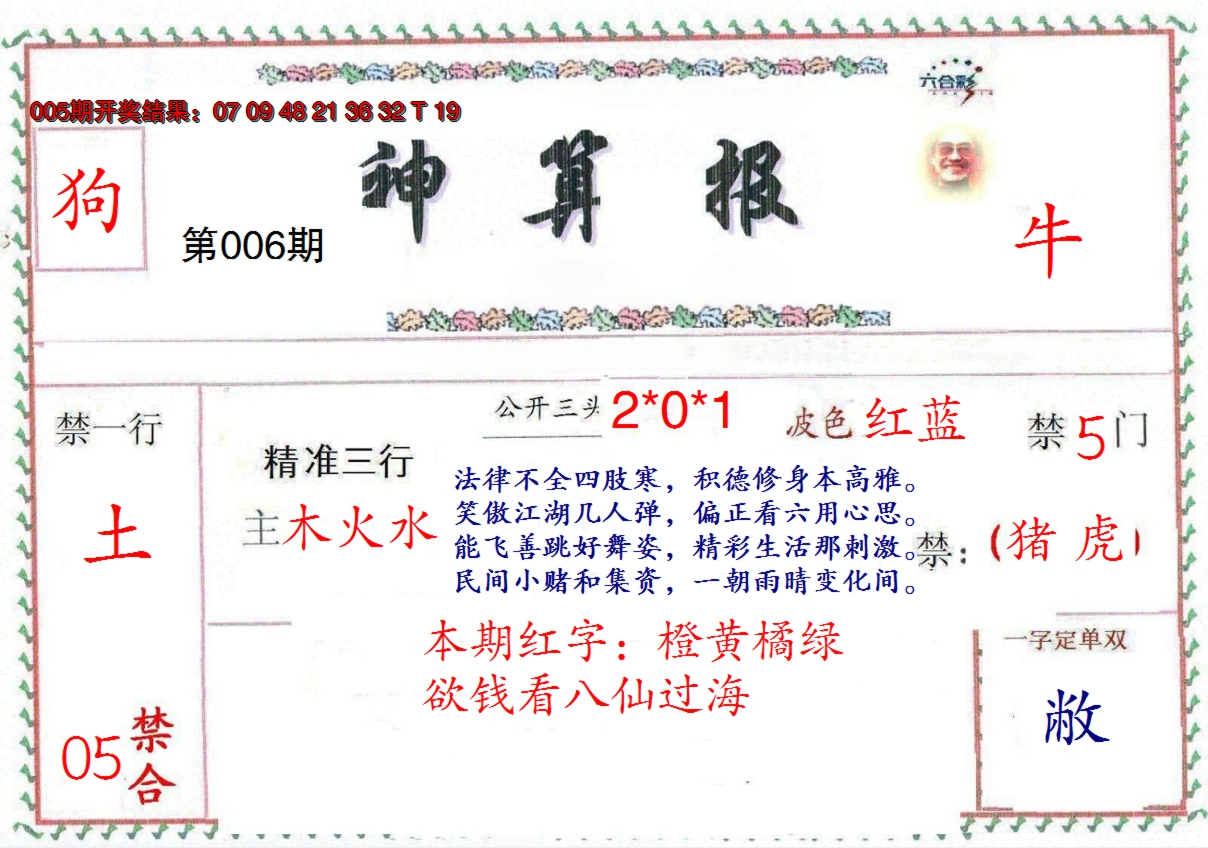 六合彩
005期开奖结果：07 09 48 21 36 32 T 19
神算报
狗
第006期
牛
禁一行
土
05禁合
精准三行
主木火水
公开三头 2*0*1
波色 红蓝
禁5门
法律不全四肢寒，积德修身本高雅。
笑傲江湖几人弹，偏正看六用心思。
能飞善跳好舞姿，精彩生活那刺激。
民间小赌和集资，一朝雨晴变化间。
禁：（猪 虎）
本期红字：橙黄橘绿
欲钱看八仙过海
一字定单双
敝